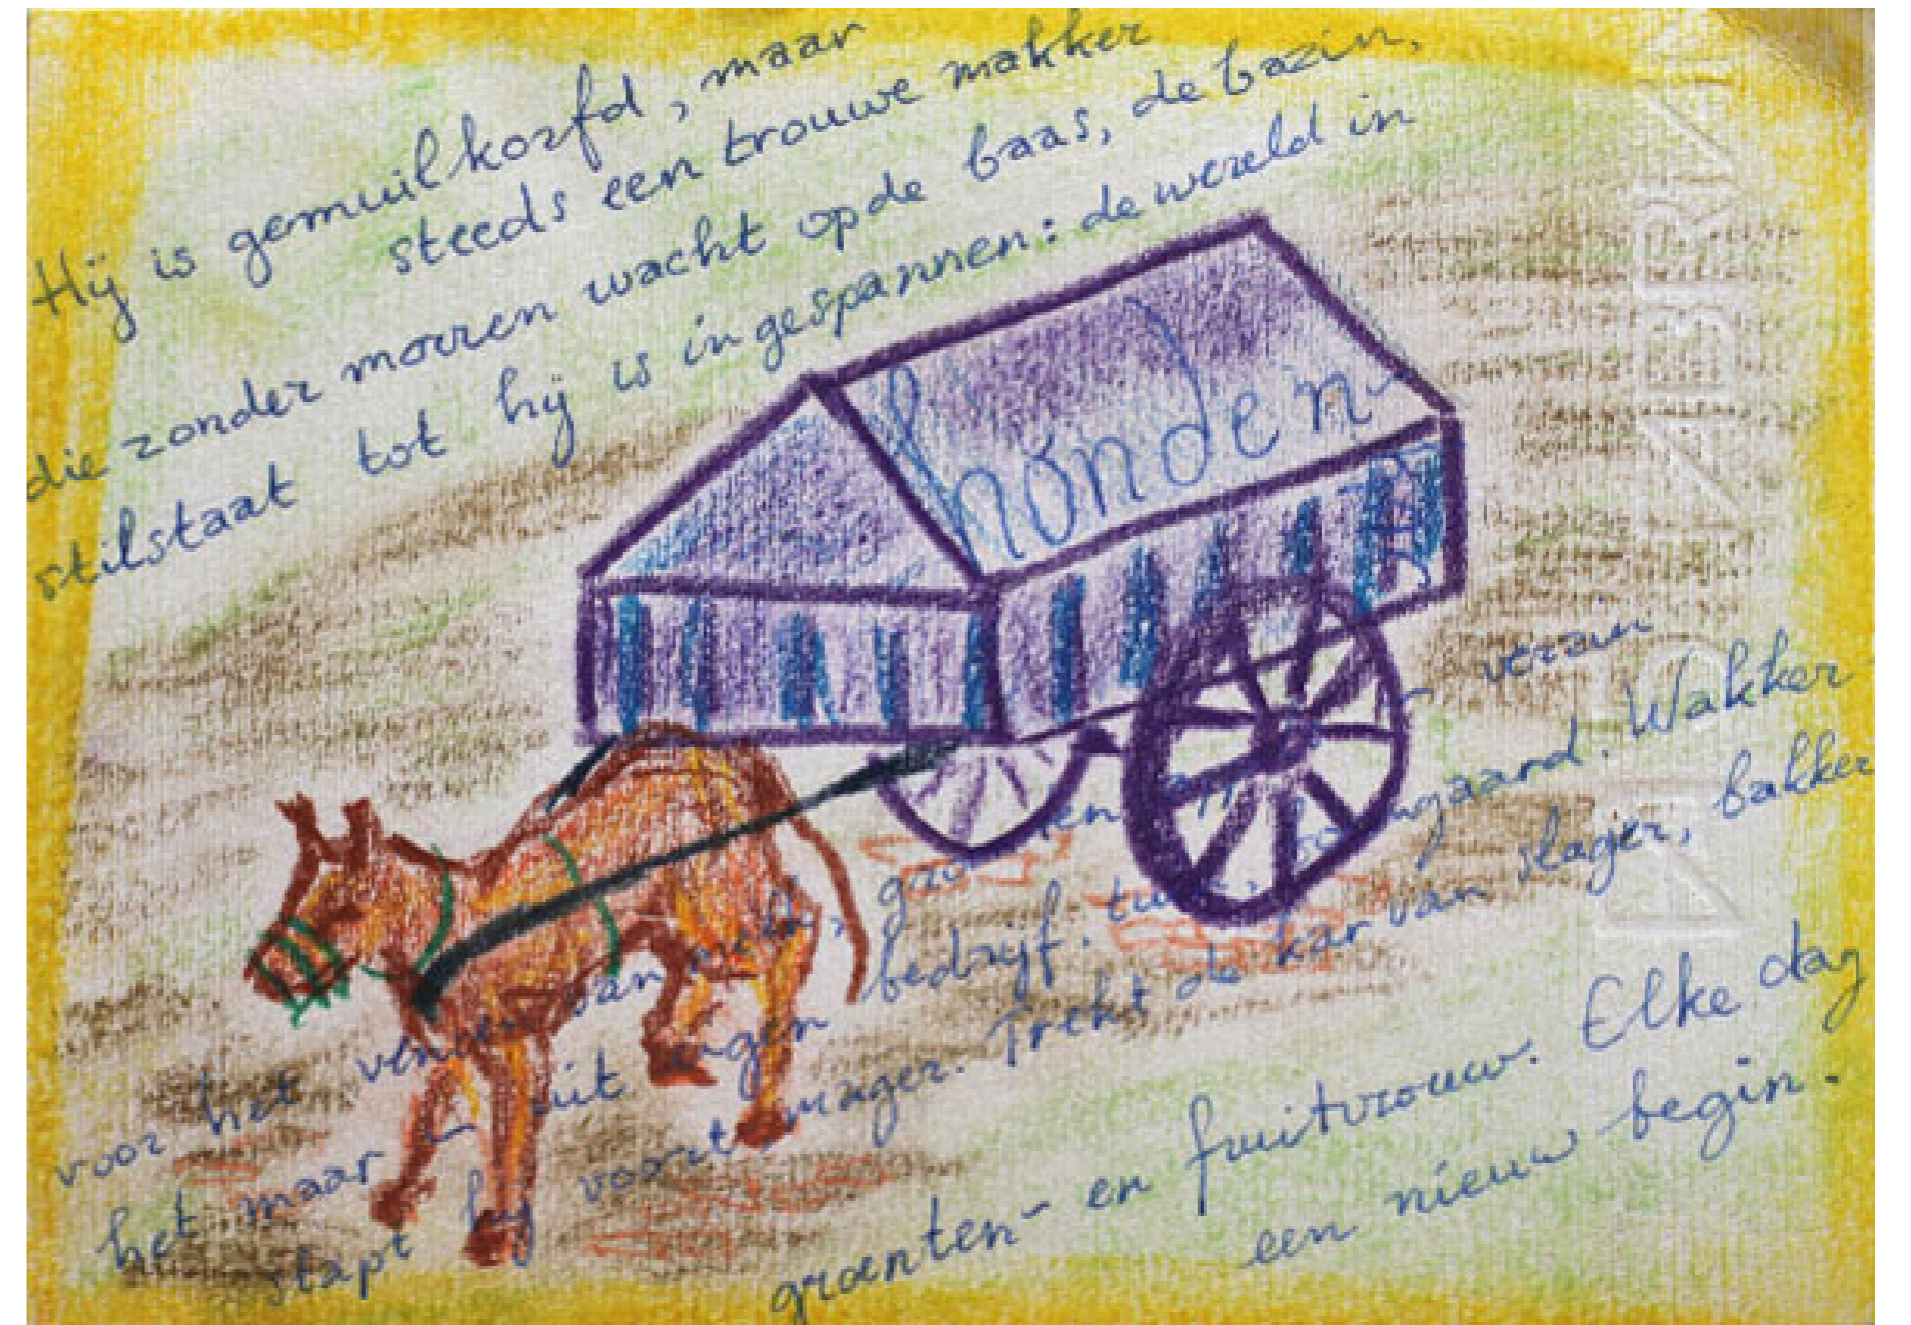 Hij is gemuilkorfd, maar
steeds een trouwe makker
die zonder morren wacht op de baas, de bazin,
stilstaat tot hij is ingespannen: de wereld in
honden-
kar
voor het venten van melk, groenten
het maar – uit eigen bedrijf. tuin, boomgaard. Wakker
stapt hij voort, mager. Trekt de kar van slager, bakker
groenten- en fruitvrouw. Elke dag
een nieuw begin.